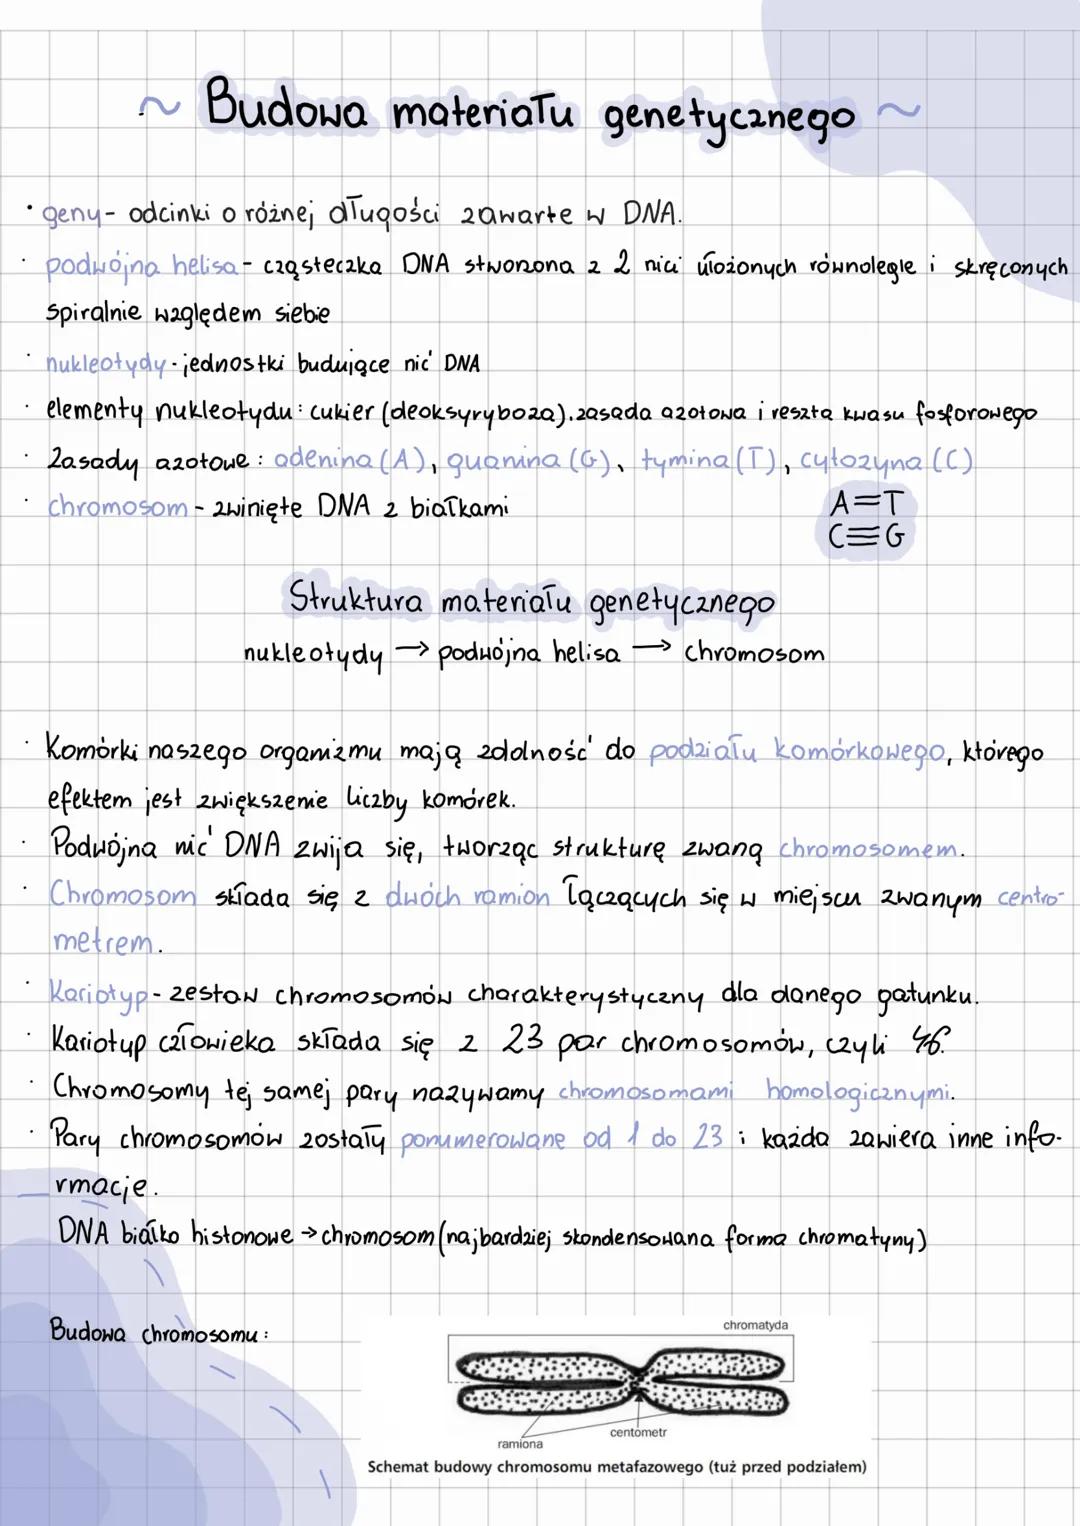 ~ Budowa materiału genetycznego ~
· geny - odcinki o różnej długości zawarte w DNA.
· podwójna helisa - cząsteczka DNA stworzona z 2 nici ułożonych równolegle i skręconych
spiralnie względem siebie
· nukleotydy - jednostki budujące nić DNA
· elementy nukleotydu: cukier (deoksyryboza), zasada azotowa i reszta kwasu fosforowego
· Zasady azotowe: adenina (A), guanina (G), tymina (T), cytozyna (C)
· chromosom - zwinięte DNA z białkami
A=T
C≡G
Struktura materiału genetycznego
nukleotydy → podwójna helisa → chromosom
· Komórki naszego organizmu mają zdolność do podziału komórkowego, którego
efektem jest zwiększenie liczby komórek.
· Podwójna nić DNA zwija się, tworząc strukturę zwaną chromosomem.
· Chromosom składa się z dwóch ramion łączących się w miejscu zwanym centro-
metrem.
· Kariotyp - zestaw chromosomów charakterystyczny dla danego gatunku.
· Kariotyp człowieka składa się z 23 par chromosomów, czyli 46.
· Chromosomy tej samej pary nazywamy chromosomami homologicznymi.
· Pary chromosomów zostały ponumerowane od 1 do 23 i każda zawiera inne info-
rmacje.
DNA białko histonowe → chromosom (najbardziej skondensowana forma chromatyny)
Budowa chromosomu:
chromatyda
centometr
ramiona
Schemat budowy chromosomu metafazowego (tuż przed podziałem)